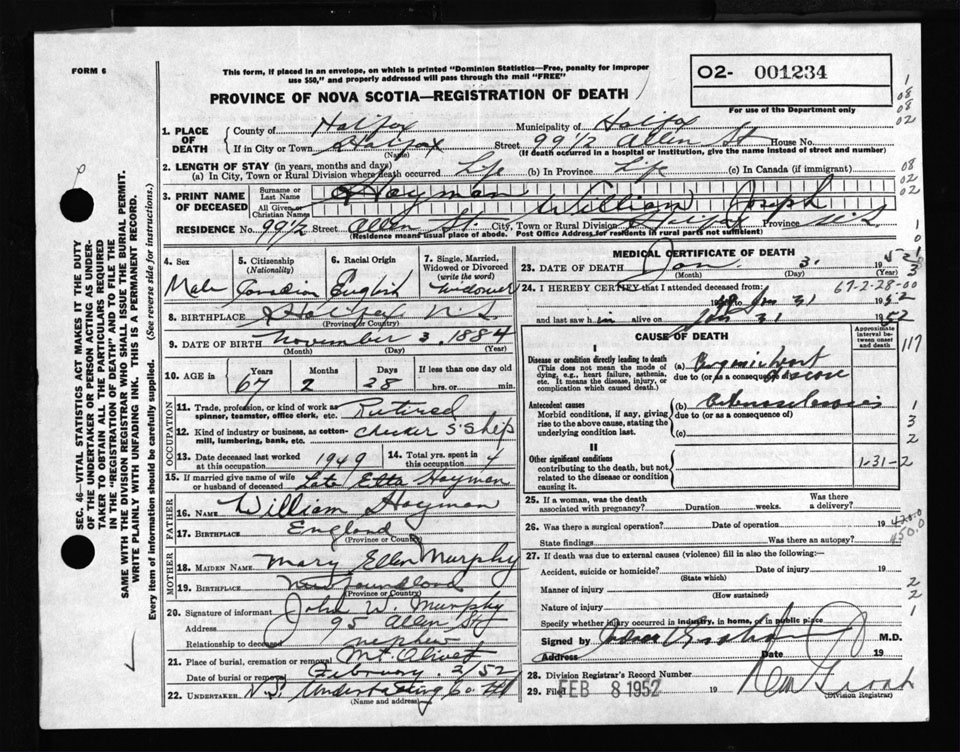 FORM 6
This form, if placed in an envelope, on which is printed "Dominion Statistics—Free, penalty for improper
use $50," and properly addressed will pass through the mail "FREE"
02- 001234
For use of the Department only
PROVINCE OF NOVA SCOTIA—REGISTRATION OF DEATH
1. PLACE OF DEATH
County of Halifax Municipality of Halifax
If in City or Town Halifax Street 99½ Allen St House No.
(Name) (If death occurred in a hospital or institution, give the name instead of street and number)
2. LENGTH OF STAY (in years, months and days)
(a) In City, Town or Rural Division where death occurred Life (b) In Province Life (c) In Canada (if immigrant)
3. PRINT NAME OF DECEASED
Surname or Last Name Hayman
All Given or Christian Names William Joseph
RESIDENCE No. 99½ Street Allen St. City, Town or Rural Division Halifax Province N.S.
(Residence means usual place of abode. Post Office Address for residents in rural parts not sufficient)
4. Sex
Male
5. Citizenship (Nationality)
Canadian
6. Racial Origin
English
7. Single, Married, Widowed or Divorced (write the word)
Widower
8. BIRTHPLACE Halifax N.S.
(Province or Country)
9. DATE OF BIRTH November 3, 1884
(Month) (Day) (Year)
10. AGE in Years Months Days If less than one day old
67 2 28 hrs. or min.
OCCUPATION
11. Trade, profession, or kind of work as
spinner, teamster, office clerk, etc. Retired
12. Kind of industry or business, as cotton-
mill, lumbering, bank, etc. Checker S. Ship
13. Date deceased last worked
at this occupation 1949
14. Total yrs. spent in
this occupation 4
15. If married give name of wife
or husband of deceased Late Etta Hayman
FATHER
16. NAME William Hayman
17. BIRTHPLACE England
(Province or Country)
MOTHER
18. MAIDEN NAME Mary Ellen Murphy
19. BIRTHPLACE Newfoundland
(Province or Country)
20. Signature of informant John W. Murphy
Address 95 Allen St
Relationship to deceased nephew
21. Place of burial, cremation or removal Mt Olivet
Date of burial or removal February 2/52
22. UNDERTAKER N.S. Undertaking Co. Ltd
(Name and address)
MEDICAL CERTIFICATE OF DEATH
23. DATE OF DEATH Jan. 31 1952
(Month) (Day) (Year)
67-2-28-00
24. I HEREBY CERTIFY that I attended deceased from:
Jan 31 1952
and last saw him alive on Jan 31 1952
CAUSE OF DEATH
Approximate interval between onset and death
I
Disease or condition directly leading to death
(This does not mean the mode of dying, e.g., heart failure, asthenia, etc. It means the disease, injury, or complication which caused death.)
(a) Organic heart
due to (or as a consequence of) disease
Antecedent causes
Morbid conditions, if any, giving rise to the above cause, stating the underlying condition last.
(b)
due to (or as a consequence of)
(c)
II
Other significant conditions
contributing to the death, but not related to the disease or condition causing it.
1-31-2
25. If a woman, was the death
associated with pregnancy? Duration weeks. Was there a delivery?
26. Was there a surgical operation? Date of operation 19
State findings Was there an autopsy?
27. If death was due to external causes (violence) fill in also the following:—
Accident, suicide or homicide? Date of injury 19
(State which)
Manner of injury
(How sustained)
Nature of injury
Specify whether injury occurred in industry, in home, or in public place
Signed by M.D.
Address Date 19
28. Division Registrar's Record Number
29. Filed FEB 8 1952 19
(Division Registrar)
SEC. 46—VITAL STATISTICS ACT MAKES IT THE DUTY
OF THE UNDERTAKER OR PERSON ACTING AS UNDER-
TAKER TO OBTAIN ALL THE PARTICULARS REQUIRED
IN THE "REGISTRATION OF DEATH" AND TO FILE THE
SAME WITH THE DIVISION REGISTRAR WHO SHALL ISSUE THE BURIAL PERMIT.
WRITE PLAINLY WITH UNFADING INK. THIS IS A PERMANENT RECORD.
Every item of information should be carefully supplied. (See reverse side for instructions.)
1
08
08
02
08
02
02
117
1
3
2
450.0
2
2
1